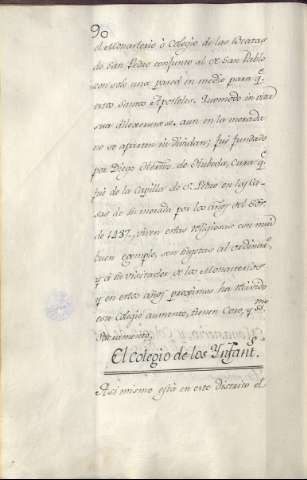 90
el Monasterio ò Colegio de las Beatas
de San Pedro conjunto al de San Pablo
con solo una pared en medio para q.e
estos Santos Apostoles, Quomodo in vita
sua dilexerunt se, aun en la morada
no se aparten ni dividan; fué fundado
por Diego Hernz. de Ubeda, Cura q.e
fué de la Capilla de S. Pedro en las Ca-
sas de su morada por los años del Sõr.
de 1437, viven estas religiosas con mui
buen egemplo, son sugetas al ordinar.o
y à su visitador de los Monasterios
y en estos años proximos ha tenido
este Colegio aumento, tienen Coro, y S.mo
Sacramento.
El Colegio de los Ynfant.s
Asi mismo està en este Distrito el